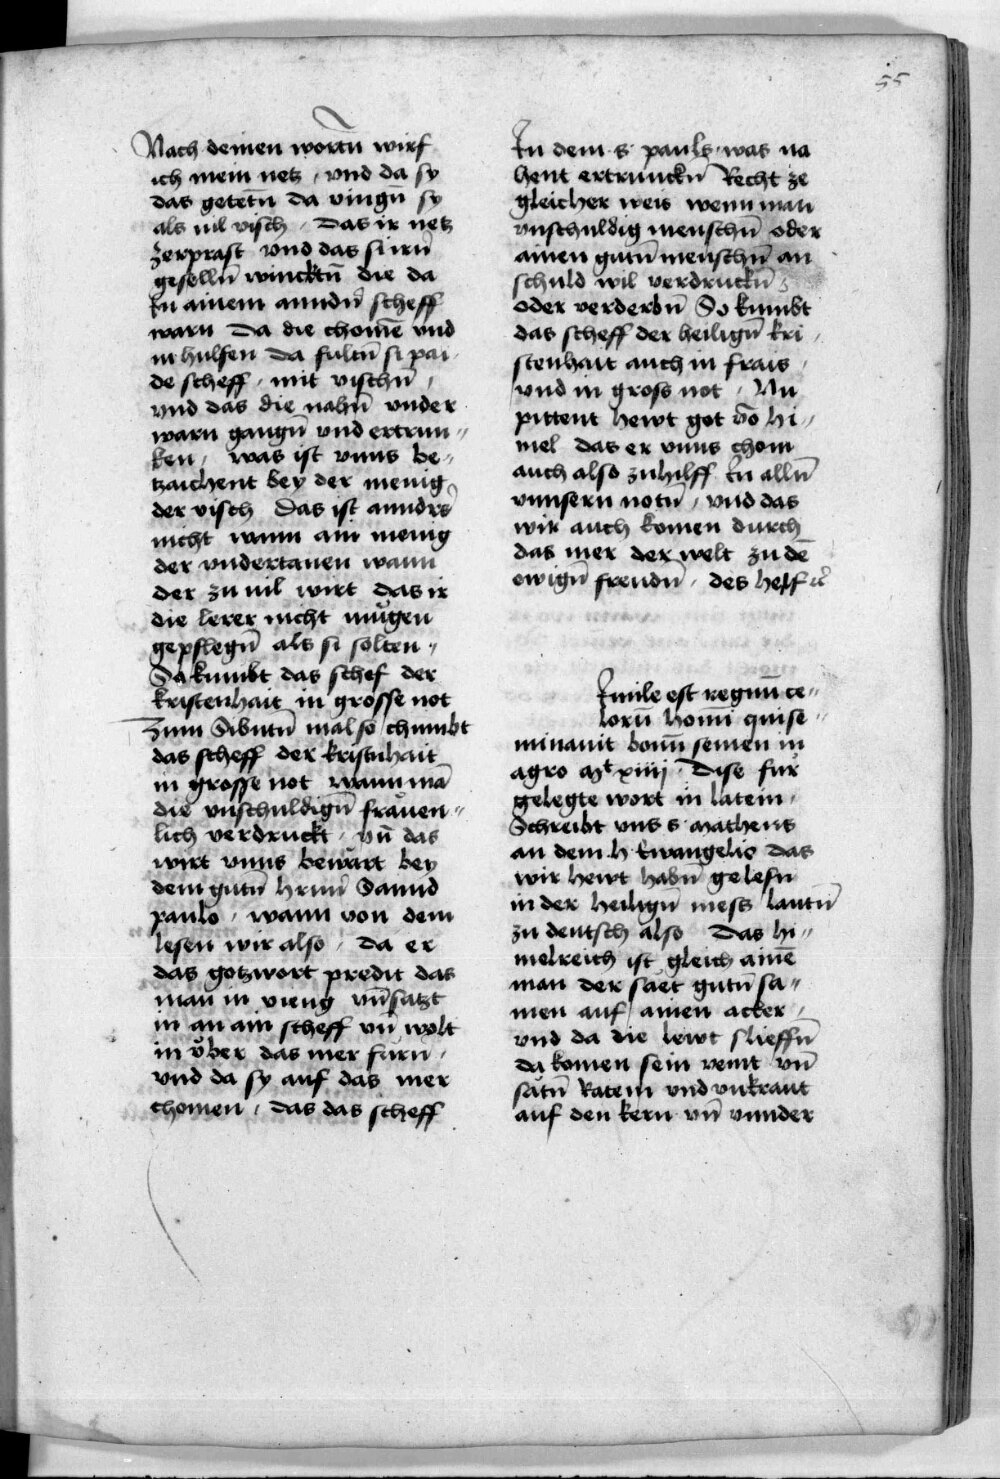 55
Nach deinen wortn̄ wirf
ich mein netz / vnd da sy
das getetn̄ da vingn̄ sy
als uil visch / Das ir netz
zerprast vnd das si irn̄
geselln̄ wincktn̄ die da
In ainem anndn̄ scheff
warn Da die chomē vnd
in hulfen da fultn̄ si pai-
de scheff / mit vischn̄ /
vnd das die nahn̄ vnder
warn gangn̄ vnd ertrun〃
ken / was ist vnns be〃
tzaichent bey der menig
der visch Das ist anndrs
nicht wann ain menig
der vndertanen wann
der zu uil wirt das ir
die lerer nicht mugen
gepflegn̄ als si solten〃
So kumbt das schef der
kristenhait in grosse not
Zum Sibntn̄ mal so chumbt
das scheff der kristnhait
in grosse not wann mā
die vnschuldign̄ fräuen〃
lich verdruckt / vn̄ das
wirt vnns bewärt bey
dem gutn̄ hrnn̄ Sannd
paulo / wann von dem
lesen wir also / da er
das gotzwort predit das
man in vieng vn̄ satzt
in an ain scheff vn̄ wolt
in vͦber das mer fürn /
vnd da sy auf das mer
chomen / das das scheff
In dem s pauls was na
hent ertrunckn̄ Recht ze
gleicher weis wenn man
vnschuldig menschn̄ oder
ainen gutn̄ menschn̄ an
schuld wil verdruckn̄
oder verderbn̄ So kumbt
das scheff der heilign̄ kri /
stenhait auch in frais /
vnd in gross not / Nu
pittent hewt got vō hi〃
mel das er vnns chom
auch also zu hilff In alln̄
vnnsern notn̄ / vnd das
wir auch komen durch
das mer der welt zu dē
ewign̄ freudn̄ / des helf
Imile est regnū ce〃
lorū homī qui se〃
minauit bonū semen in
agro Mt xiiij / Dise für
gelegte wort in latein /
Schreibt vns s matheus
an dem h Ewangelio das
wir hewt habn̄ gelesn
in der heilign̄ mess lautn̄
zu deutsch also Das hi〃
melreich ist gleich ainē
man der säet gutn̄ sa〃
men auf ainen acker /
vnd da die lewt slieffn̄
da komen sein veint vn̄
sätn̄ Ratem vnd vnkraut
auf den kern vn̄ vnnder